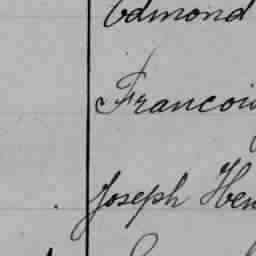 Edmond
Francois
Joseph Hen